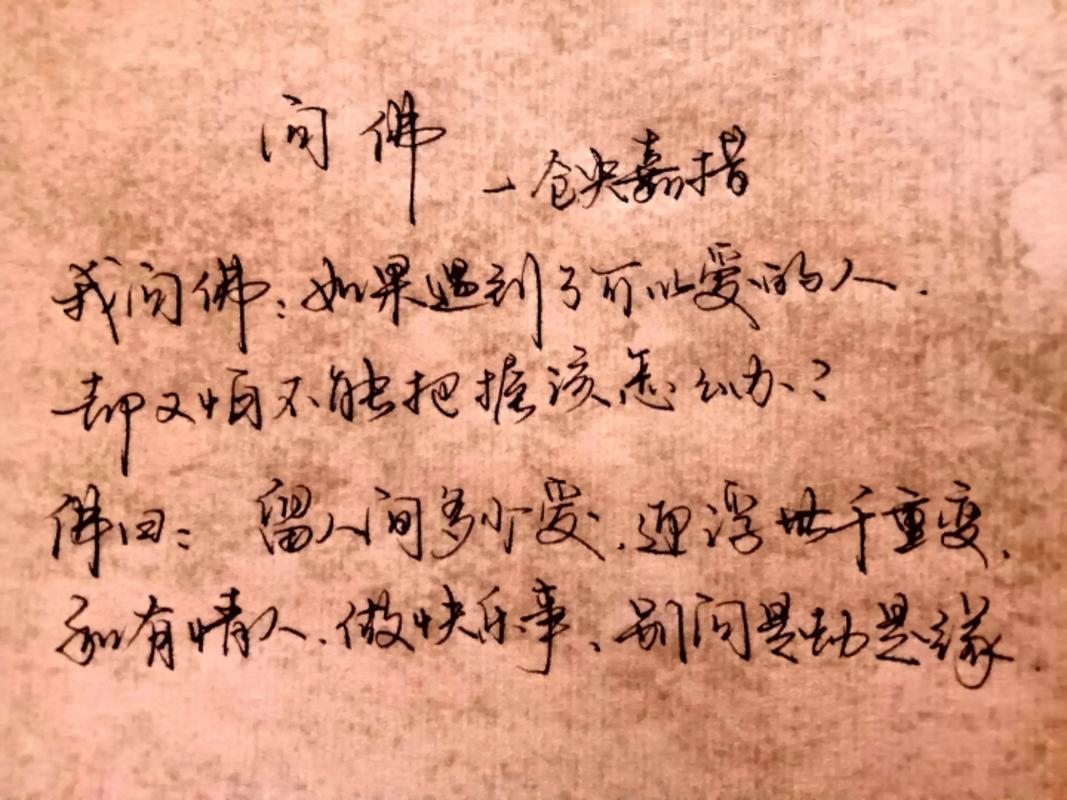 问佛
-仓央嘉措
我问佛：如果遇到了可以爱的人.
却又怕不能把握该怎么办？
佛曰： 留人间多少爱，迎浮世千重变，
和有情人，做快乐事、别问是劫是缘.